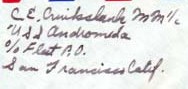 C.E. Cruikshank MM1/c
U.S.S Andromeda
c/o Fleet P.O.
San Francisco Calif.